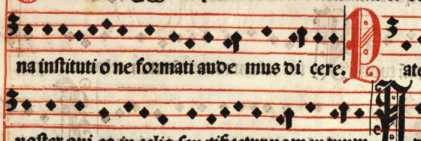 na instituti o ne formati aude mus di cere. P ate
noster qui es in celis san